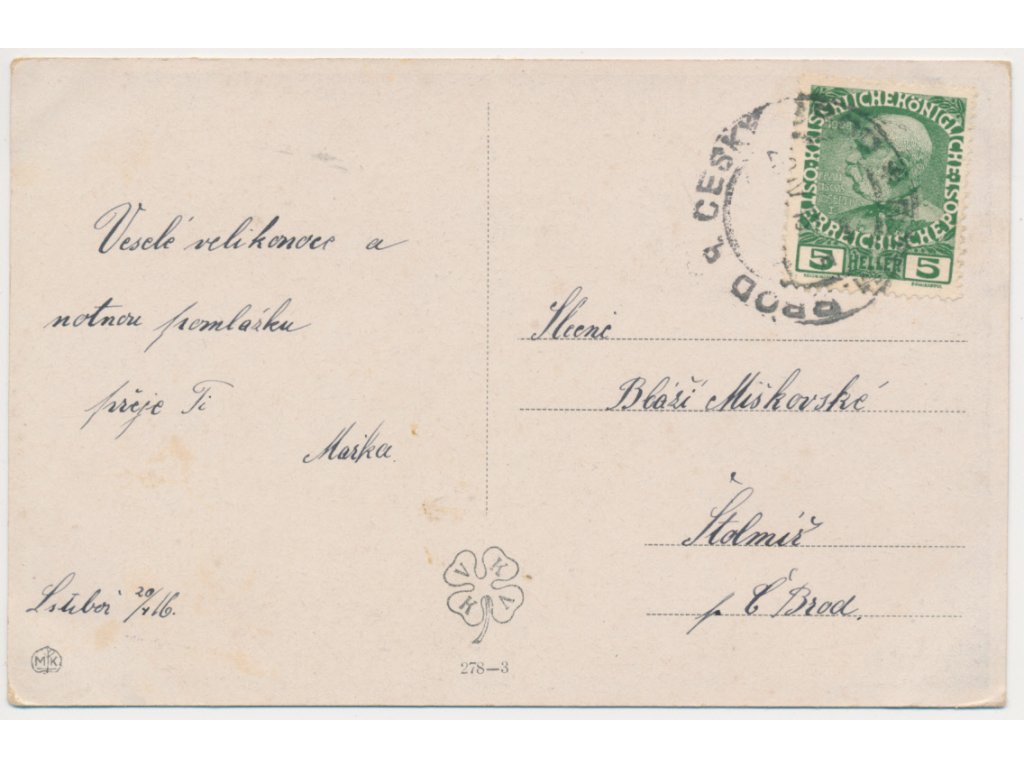 Veselé velikonoce a
notnou pomlázku
přeje Ti
Mařka.
20/4 16.
MK
VKVK
278—3
Slečně
Bláži Miškovské
Štolmíř
p Č Brod.
KAISERLICHE KÖNIGLICHE
ÖSTERREICHISCHE POST
5 HELLER 5
BROD ČESKÝ